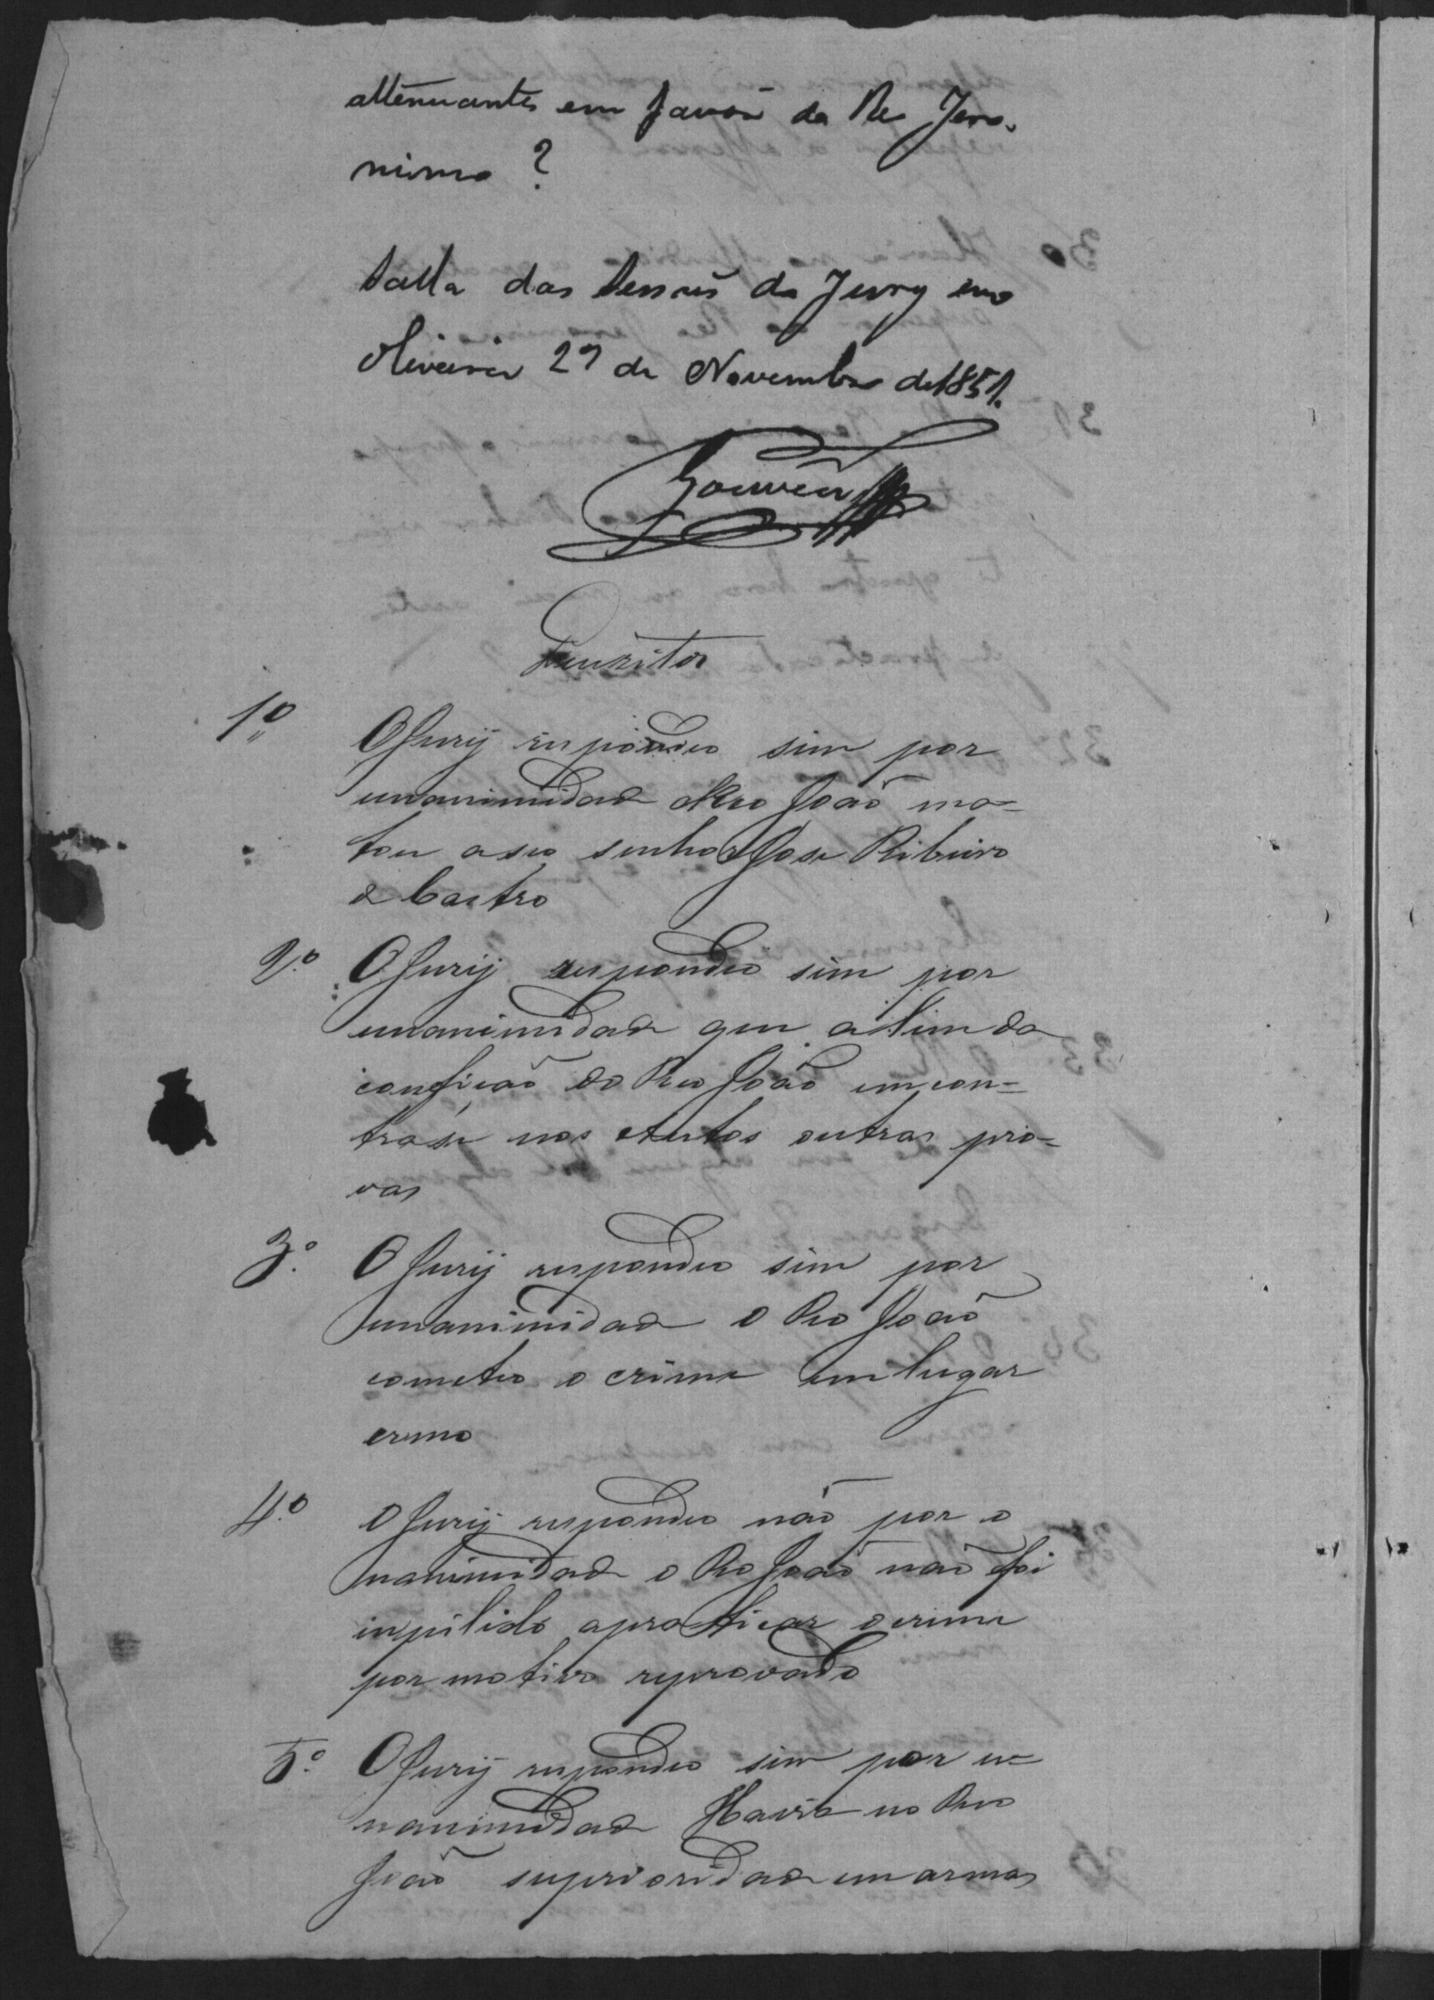 attenuantes em favor do Reo Jero-
nimo ?
Salla das Sessões do Jury em
Oliveira 27 de Novembro de 1851.
Gouvêa
Quezitos
1º O Jurij respondeo sim por
unanimidade o Reo João ma=
tou a seo senhor Jose Ribeiro
de Castro
2º O Jurij respondeo sim por
unanimidade que alem da
confição do Reo João emcon=
trase nos Autos outras pro=
vas
3º O Jurij respondeo sim por
unanimidade o Reo João
cometeo o crime em lugar
ermo
4º O Jurij respondeo não por o
nanimidade o Reo João não foi
inpilido a praticar o crime
por motivo reprovado
5º O Jurij respondeo sim por u=
nanimidade Havia no Reo
João superioridade em armas